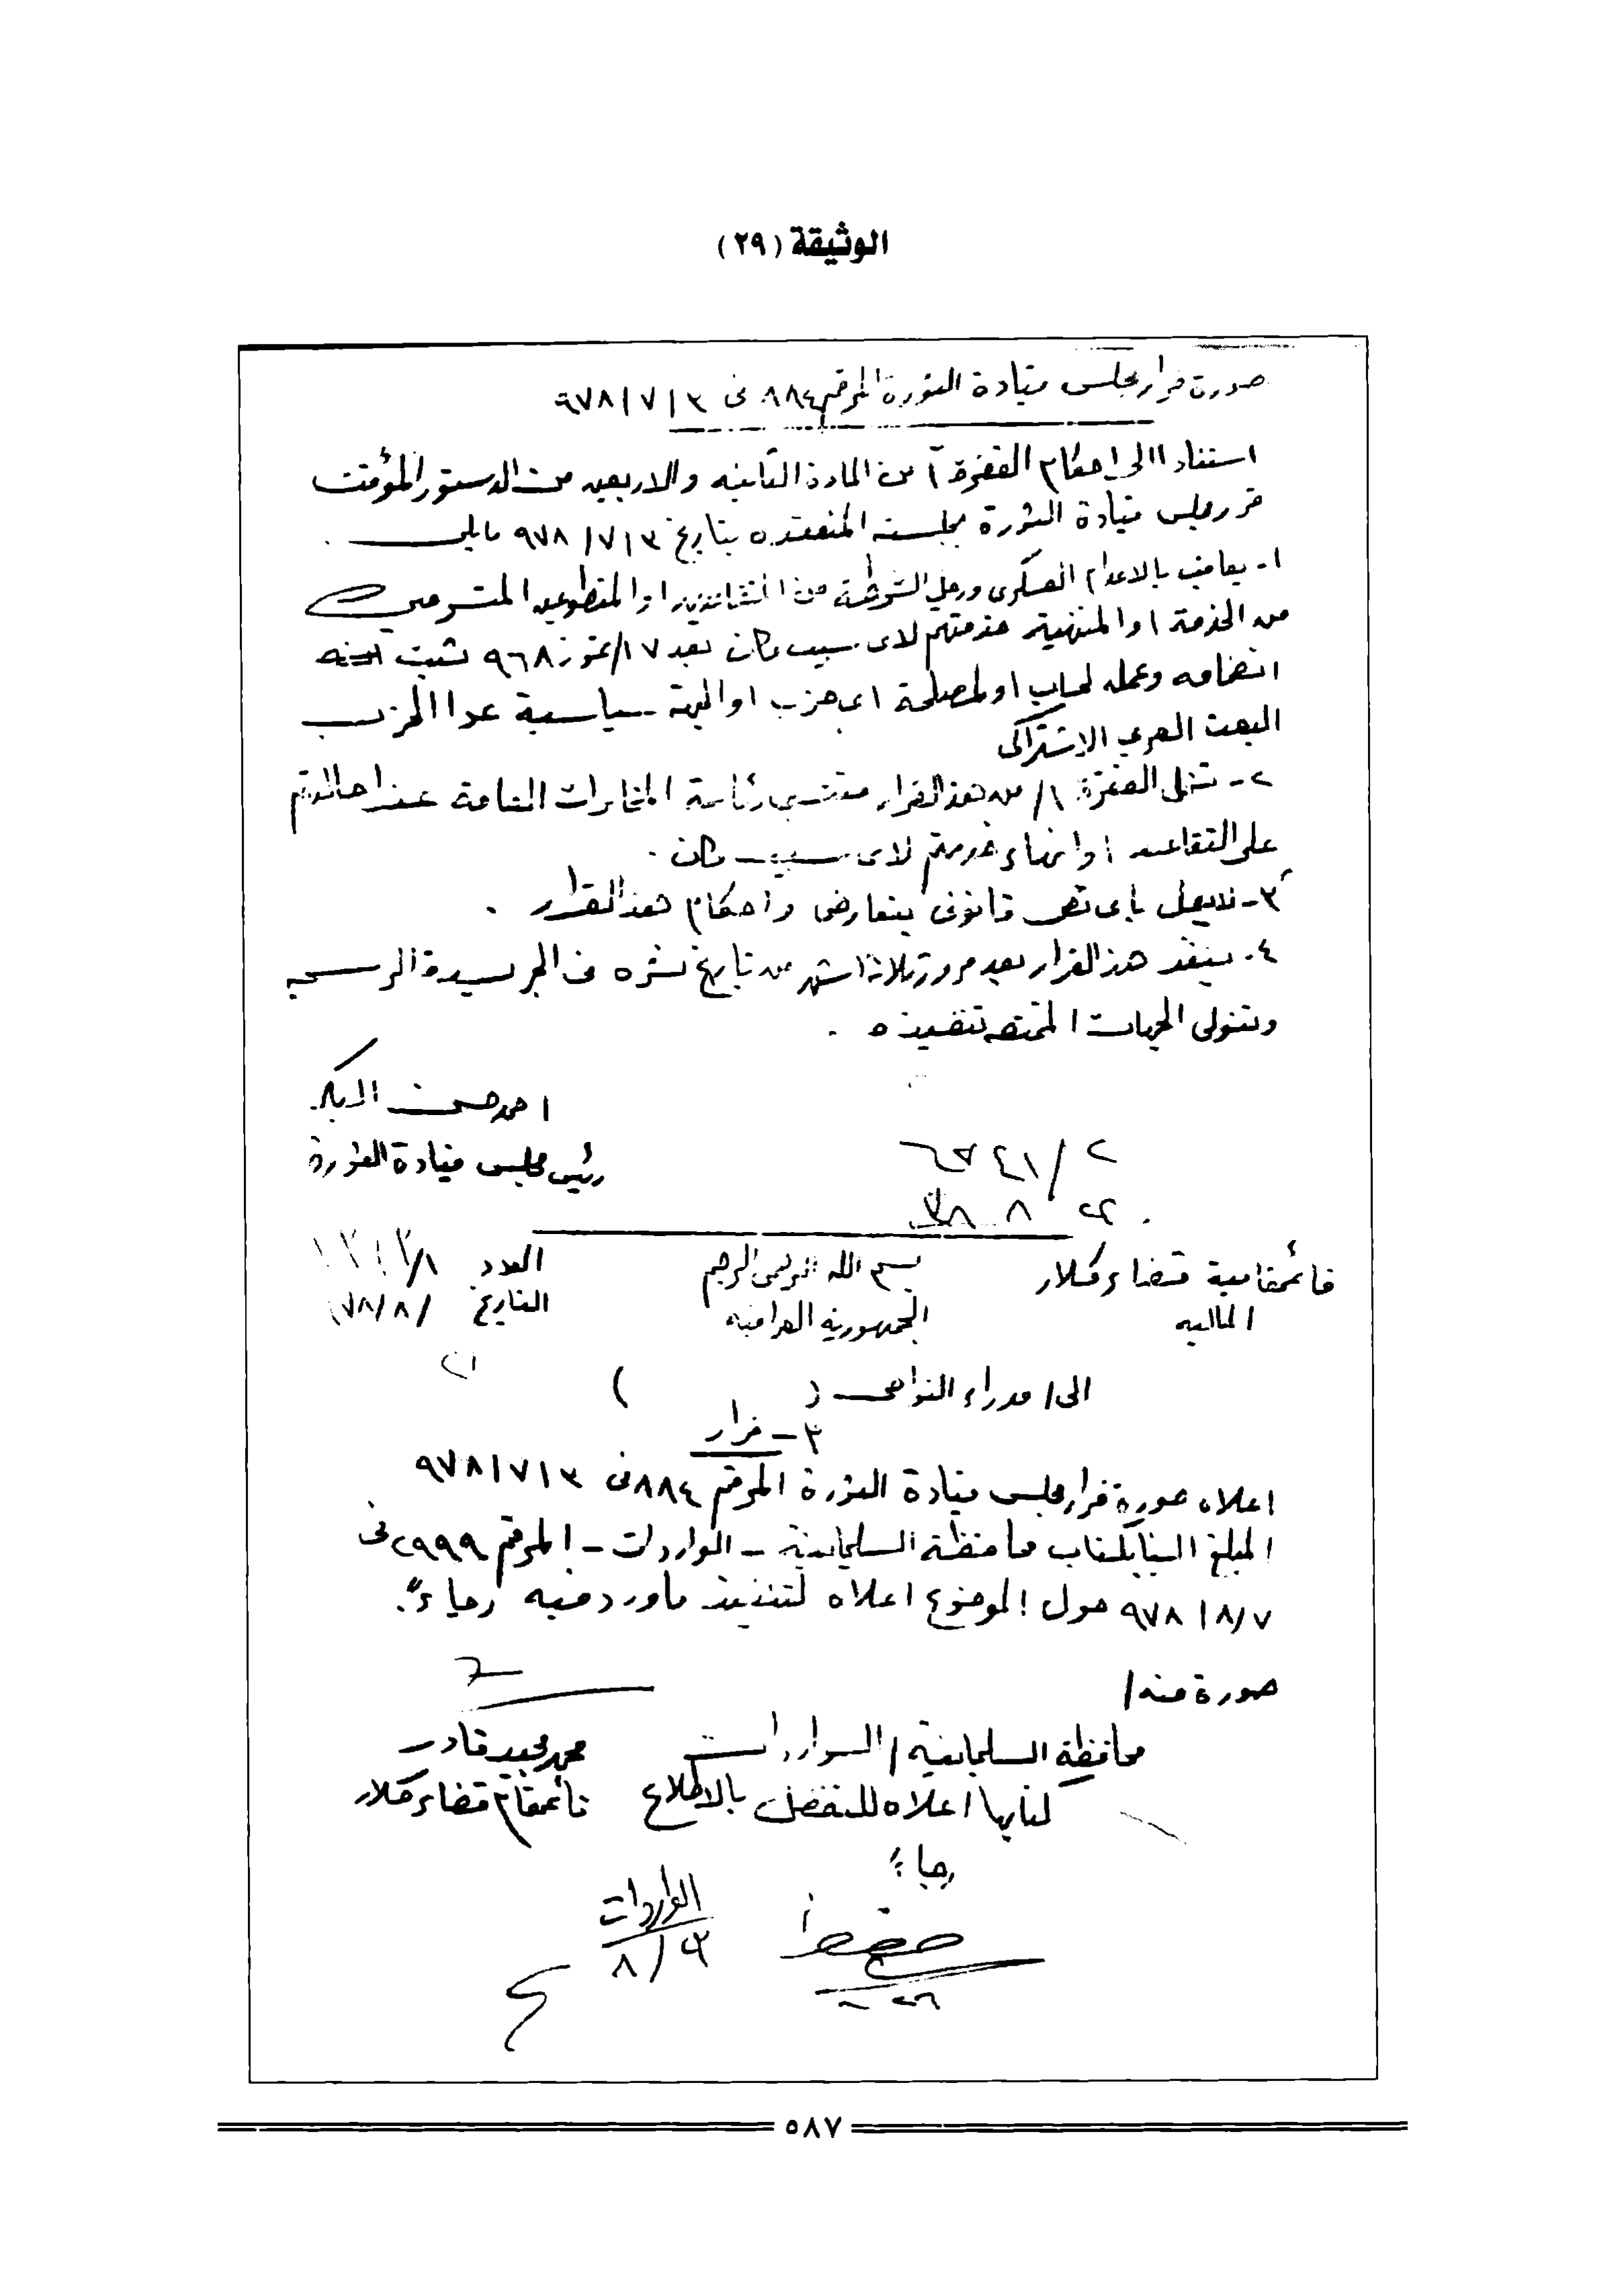 الوثيقة (٢٩)
صورة قرار مجلس قيادة الثورة المرقم ٨٨٤ في ٩٧٨/٧/٣
استنادا الى احكام الفقرة أ من المادة الثانيه والاربعين من الدستور المؤقت
قرر مجلس قيادة الثورة بجلسته المنعقده بتاريخ ٩٧٨/٧/٣ مايلي .
١- يعاقب بالاعدام العسكري ورجل الشرطة من المتقاعدين او المتطوعين المتسرحين
من الخدمة او المنتهية خدمتهم لاي سبب كان بعد ١٧/تموز ٩٦٨ تثبت
انضمامه وعمله لحساب او لمصلحة اي حزب او الجهة سياسية عدا الحزب
البعث العربي الاشتراكي
٢- تشمل الفقرة /١ من هذا القرار منتسبي رئاسة المخابرات العامة عند احالتهم
على التقاعد او انهاء خدمتهم لاي سبب كان .
٣- لايعمل باي نص قانوني يتعارض واحكام هذا القرار .
٤- ينفذ هذا القرار بعد مرور ثلاثة اشهر من تاريخ نشره في الجريدة الرسمية
وتتولى الجهات المختصه تنفيذه .
احمد حسن البكر
رئيس مجلس قيادة الثورة
قائمقامية قضاء كلار بسم الله الرحمن الرحيم العدد
الماليه الجمهورية العراقيه التاريخ / /٧٨/٨
الى/ مدراء النواحي ( )
م - قرار
اعلاه صورة قرار مجلس قيادة الثورة المرقم ٨٨٤ في ٩٧٨/٧/٣
المبلغ الينا بكتاب محافظة السليمانية - الواردات - المرقم ٢٩٩٩ في
٩٧٨/٨/٧ حول الموضوع اعلاه لتنفيذ ماورد فيه رجاءً .
صورة منه/
محافظة السليمانية / الواردات
محمد مجيد قادر
كتابها اعلاه للتفضل بالاطلاع
قائمقام قضاء كلار
رجاءً
الواردات
٥٨٧